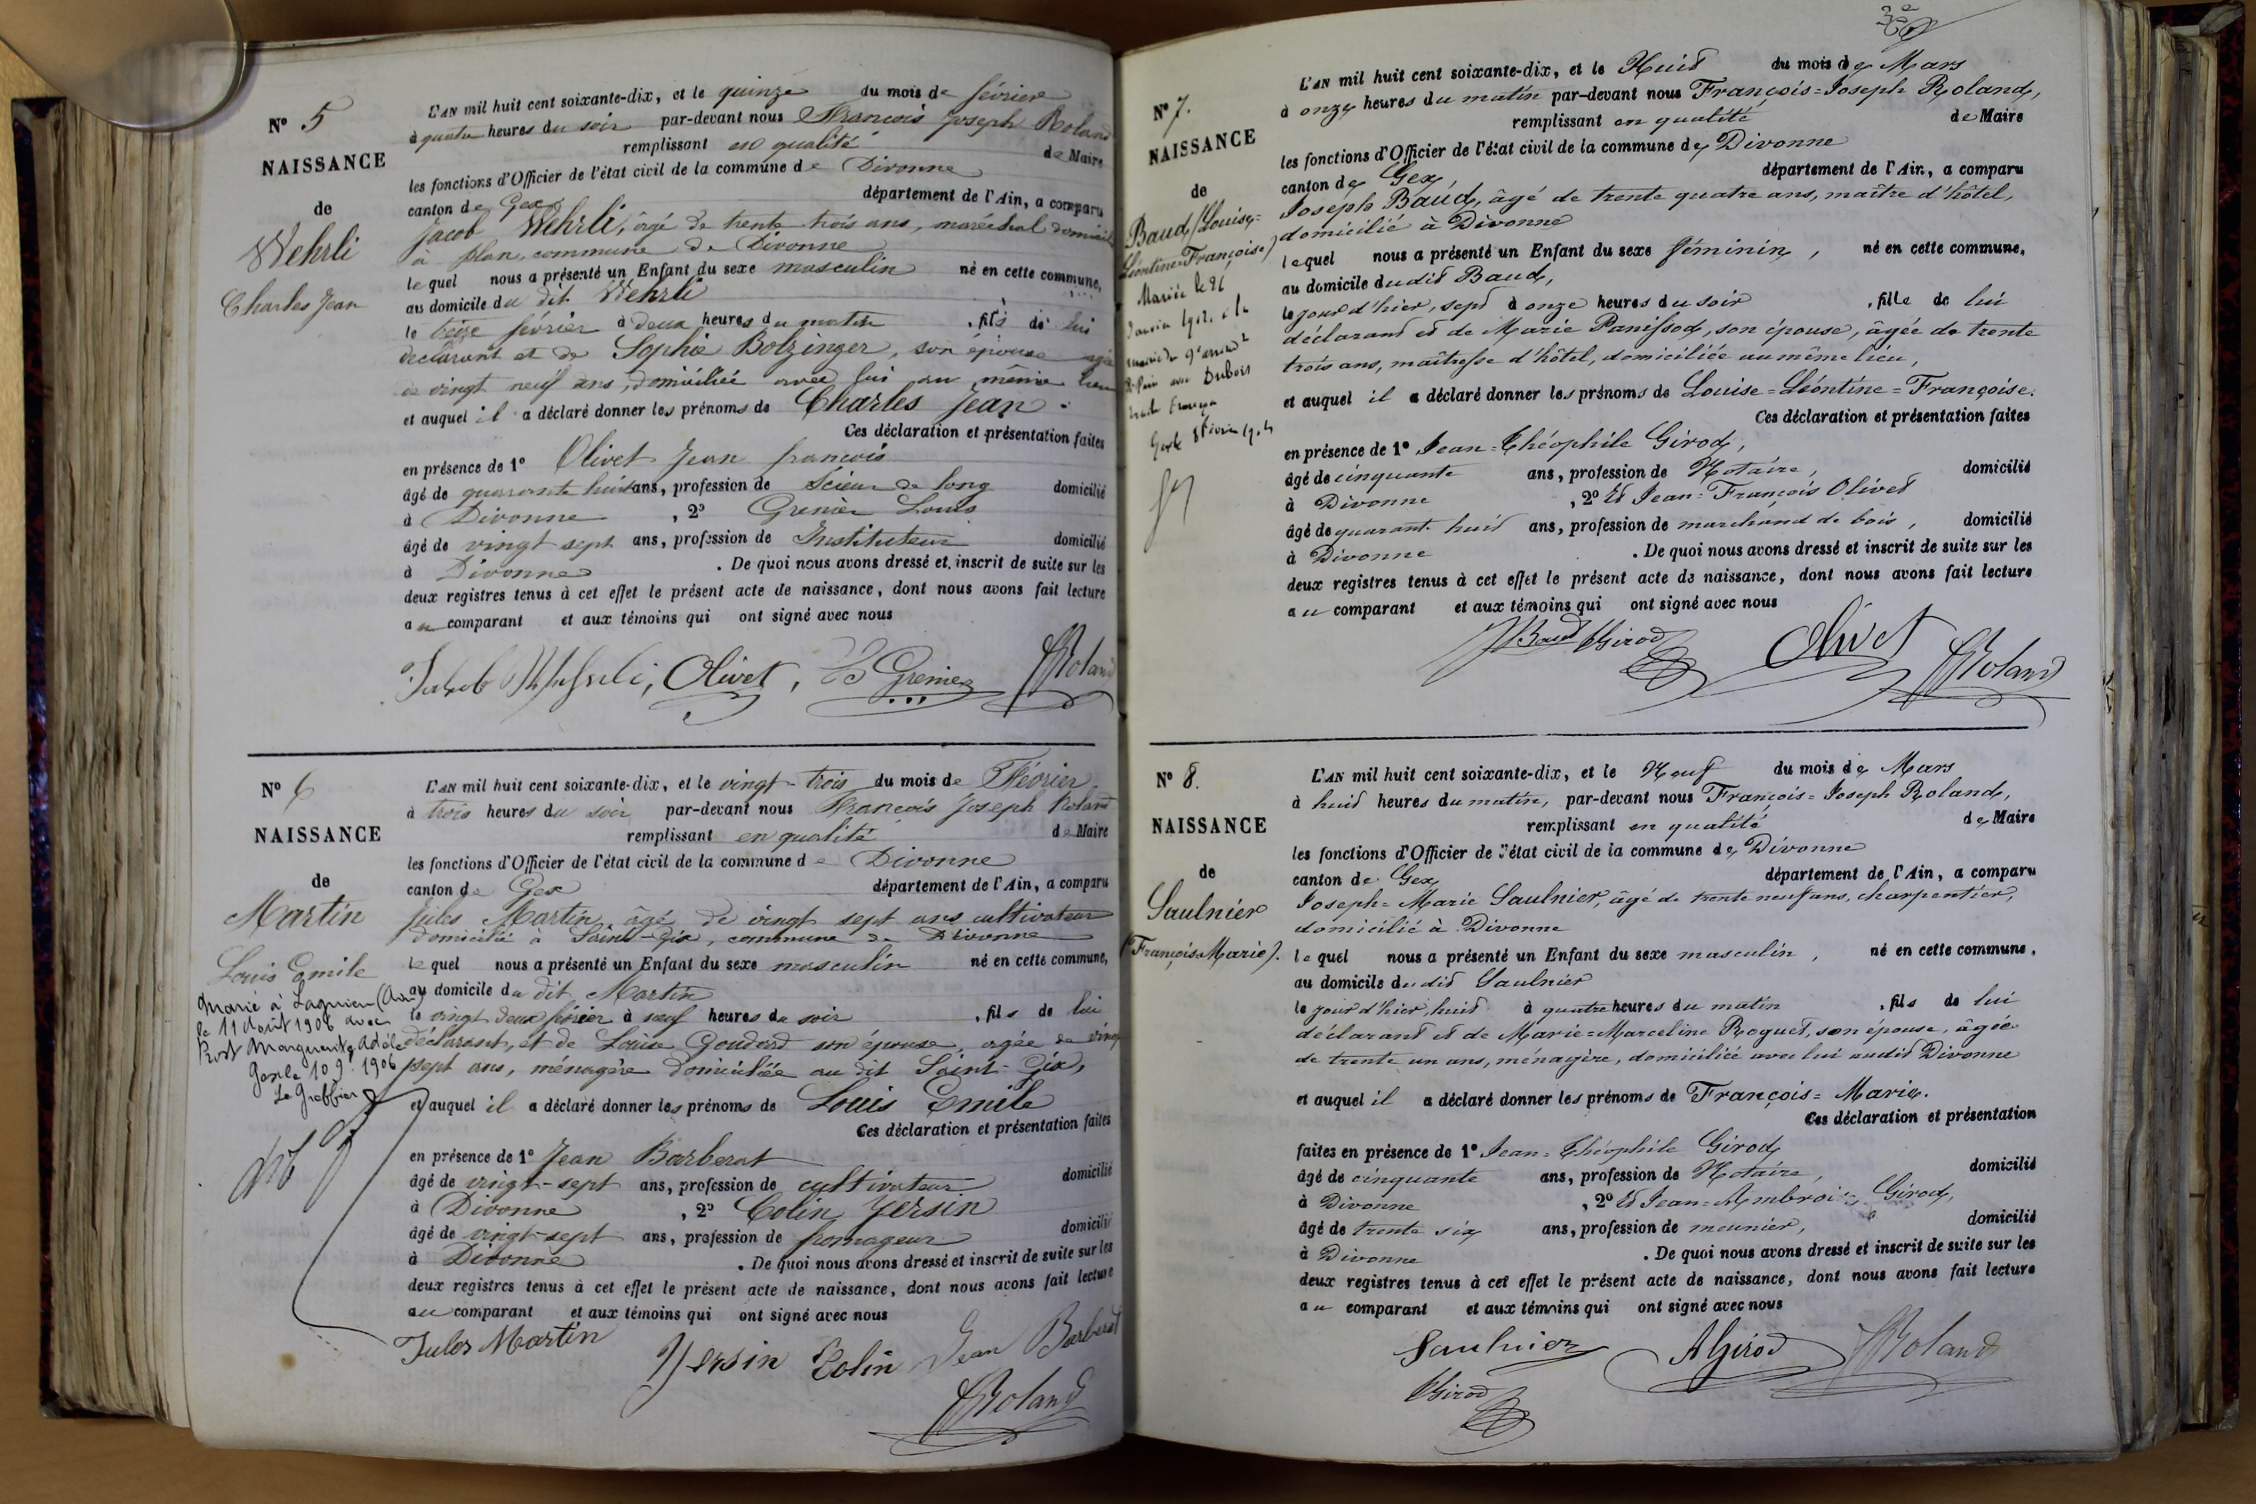 Nº 5
NAISSANCE
de
Wehrli
Charles Jean
L'AN mil huit cent soixante-dix, et le quinze du mois de février
à quatre heures du soir par-devant nous François Joseph Roland
remplissant en qualité de Maire
les fonctions d'Officier de l'état civil de la commune de Divonne
canton de Gex département de l'Ain, a comparu
Jacob Wehrli, âgé de trente trois ans, maréchal domicilié
à plan, commune de Divonne
lequel nous a présenté un Enfant du sexe masculin né en cette commune,
au domicile du dit Wehrli
le treize février à deux heures du matin, fils de lui
déclarant et de Sophie Bolzinger, son épouse agée
de vingt neuf ans, domiciliée avec lui au même lieu
et auquel il a déclaré donner les prénoms de Charles Jean.
Ces déclaration et présentation faites
en présence de 1º Olivet Jean françois
âgé de quarante huit ans, profession de Scieur de long domicilié
à Divonne, 2º Grenier Louis
âgé de vingt sept ans, profession de Instituteur domicilié
à Divonne. De quoi nous avons dressé et inscrit de suite sur les
deux registres tenus à cet effet le présent acte de naissance, dont nous avons fait lecture
au comparant et aux témoins qui ont signé avec nous
Olivet, Grenier Roland
Nº 6
NAISSANCE
de
Martin
Louis Emile
Marié à Lagnieu (Ain)
le 11 Août 1906 avec
Prost Marguerite Adèle
Gex le 10 9. 1906
Le Greffier
L'AN mil huit cent soixante-dix, et le vingt-trois du mois de Février
à trois heures du soir par-devant nous François Joseph Roland
remplissant en qualité de Maire
les fonctions d'Officier de l'état civil de la commune de Divonne
canton de Gex département de l'Ain, a comparu
Jules Martin, âgé de vingt sept ans cultivateur
domicilié à Saint-Gix, commune de Divonne
lequel nous a présenté un Enfant du sexe masculin né en cette commune,
au domicile du dit Martin
le vingt deux février à neuf heures du soir, fils de lui
déclarant, et de Louise Goudard son épouse, agée de vingt
sept ans, ménagère domiciliée au dit Saint-Gix,
et auquel il a déclaré donner les prénoms de Louis Emile
Ces déclaration et présentation faites
en présence de 1º Jean Barberat
âgé de vingt-sept ans, profession de cultivateur domicilié
à Divonne, 2º Colin Yersin
âgé de vingt-sept ans, profession de fromageur domicilié
à Divonne. De quoi nous avons dressé et inscrit de suite sur les
deux registres tenus à cet effet le présent acte de naissance, dont nous avons fait lecture
au comparant et aux témoins qui ont signé avec nous
Jules Martin Yersin Colin Jean Barberat
Roland
Nº 7.
NAISSANCE
de
Baud (Louise=
Léontine=Françoise)
Mariée le 26
L'AN mil huit cent soixante-dix, et le Huit du mois de Mars
à onze heures du matin par-devant nous François=Joseph Roland,
remplissant en qualité de Maire
les fonctions d'Officier de l'état civil de la commune de Divonne
canton de Gex, département de l'Ain, a comparu
Joseph Baud, âgé de trente quatre ans, maître d'hôtel,
domicilié à Divonne
lequel nous a présenté un Enfant du sexe féminin, né en cette commune,
au domicile dudit Baud,
le jour d'hier, sept à onze heures du soir, fille de lui
déclarant et de Marie Panissod, son épouse, âgée de trente
trois ans, maîtresse d'hôtel, domiciliée au même lieu,
et auquel il a déclaré donner les prénoms de Louise=Léontine=Françoise.
Ces déclaration et présentation faites
en présence de 1º Jean=Théophile Girod,
âgé de cinquante ans, profession de Notaire, domicilié
à Divonne, 2º Et Jean=François Olivet
âgé de quarante huit ans, profession de marchand de bois, domicilié
à Divonne. De quoi nous avons dressé et inscrit de suite sur les
deux registres tenus à cet effet le présent acte de naissance, dont nous avons fait lecture
au comparant et aux témoins qui ont signé avec nous
JBaud Girod Olivet Roland
Nº 8.
NAISSANCE
de
Saulnier
(François=Marie).
L'AN mil huit cent soixante-dix, et le Neuf du mois de Mars
à huit heures du matin, par-devant nous François=Joseph Roland,
remplissant en qualité de Maire
les fonctions d'Officier de l'état civil de la commune de Divonne
canton de Gex département de l'Ain, a comparu
Joseph=Marie Saulnier, âgé de trente neuf ans, charpentier,
domicilié à Divonne
lequel nous a présenté un Enfant du sexe masculin, né en cette commune,
au domicile dudit Saulnier
le jour d'hier, huit à quatre heures du matin, fils de lui
déclarant et de Marie=Marceline Roguet, son épouse, âgée
de trente un ans, ménagère, domiciliée avec lui audit Divonne
et auquel il a déclaré donner les prénoms de François=Marie.
Ces déclaration et présentation
faites en présence de 1º Jean=Théophile Girod
âgé de cinquante ans, profession de Notaire, domicilié
à Divonne, 2º Et Jean=Ambroise Girod,
âgé de trente six ans, profession de meunier, domicilié
à Divonne. De quoi nous avons dressé et inscrit de suite sur les
deux registres tenus à cet effet le présent acte de naissance, dont nous avons fait lecture
au comparant et aux témoins qui ont signé avec nous
Saulnier AGirod Roland
Girod